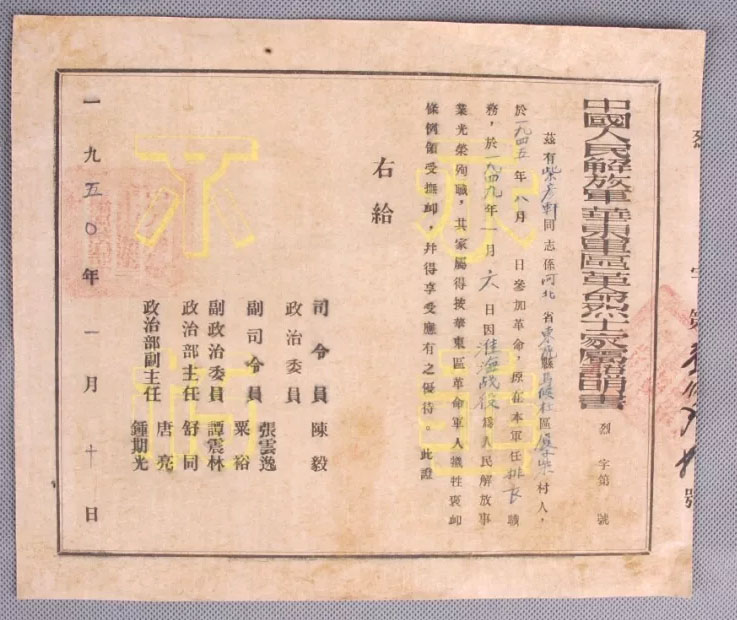 中國人民解放軍華東軍區革命烈士家屬證明書
烈 字第 號
茲有柴彦軒同志係河北省東流縣區村人，
於一九四五年八月 日參加革命，原在本軍任排長職
務，於一九四九年一月六日因淮海战役為人民解放事
業光榮殉職，其家屬得按華東區革命軍人犧牲褒卹
條例領受撫卹，并得享受應有之優待。此證
右給
司令員 陳毅
政治委員
副司令員 張雲逸
粟裕
副政治委員 譚震林
政治部主任 舒同
政治部副主任 唐亮
鍾期光
一九五〇年一月十日
永
垂
不
朽
字第
號